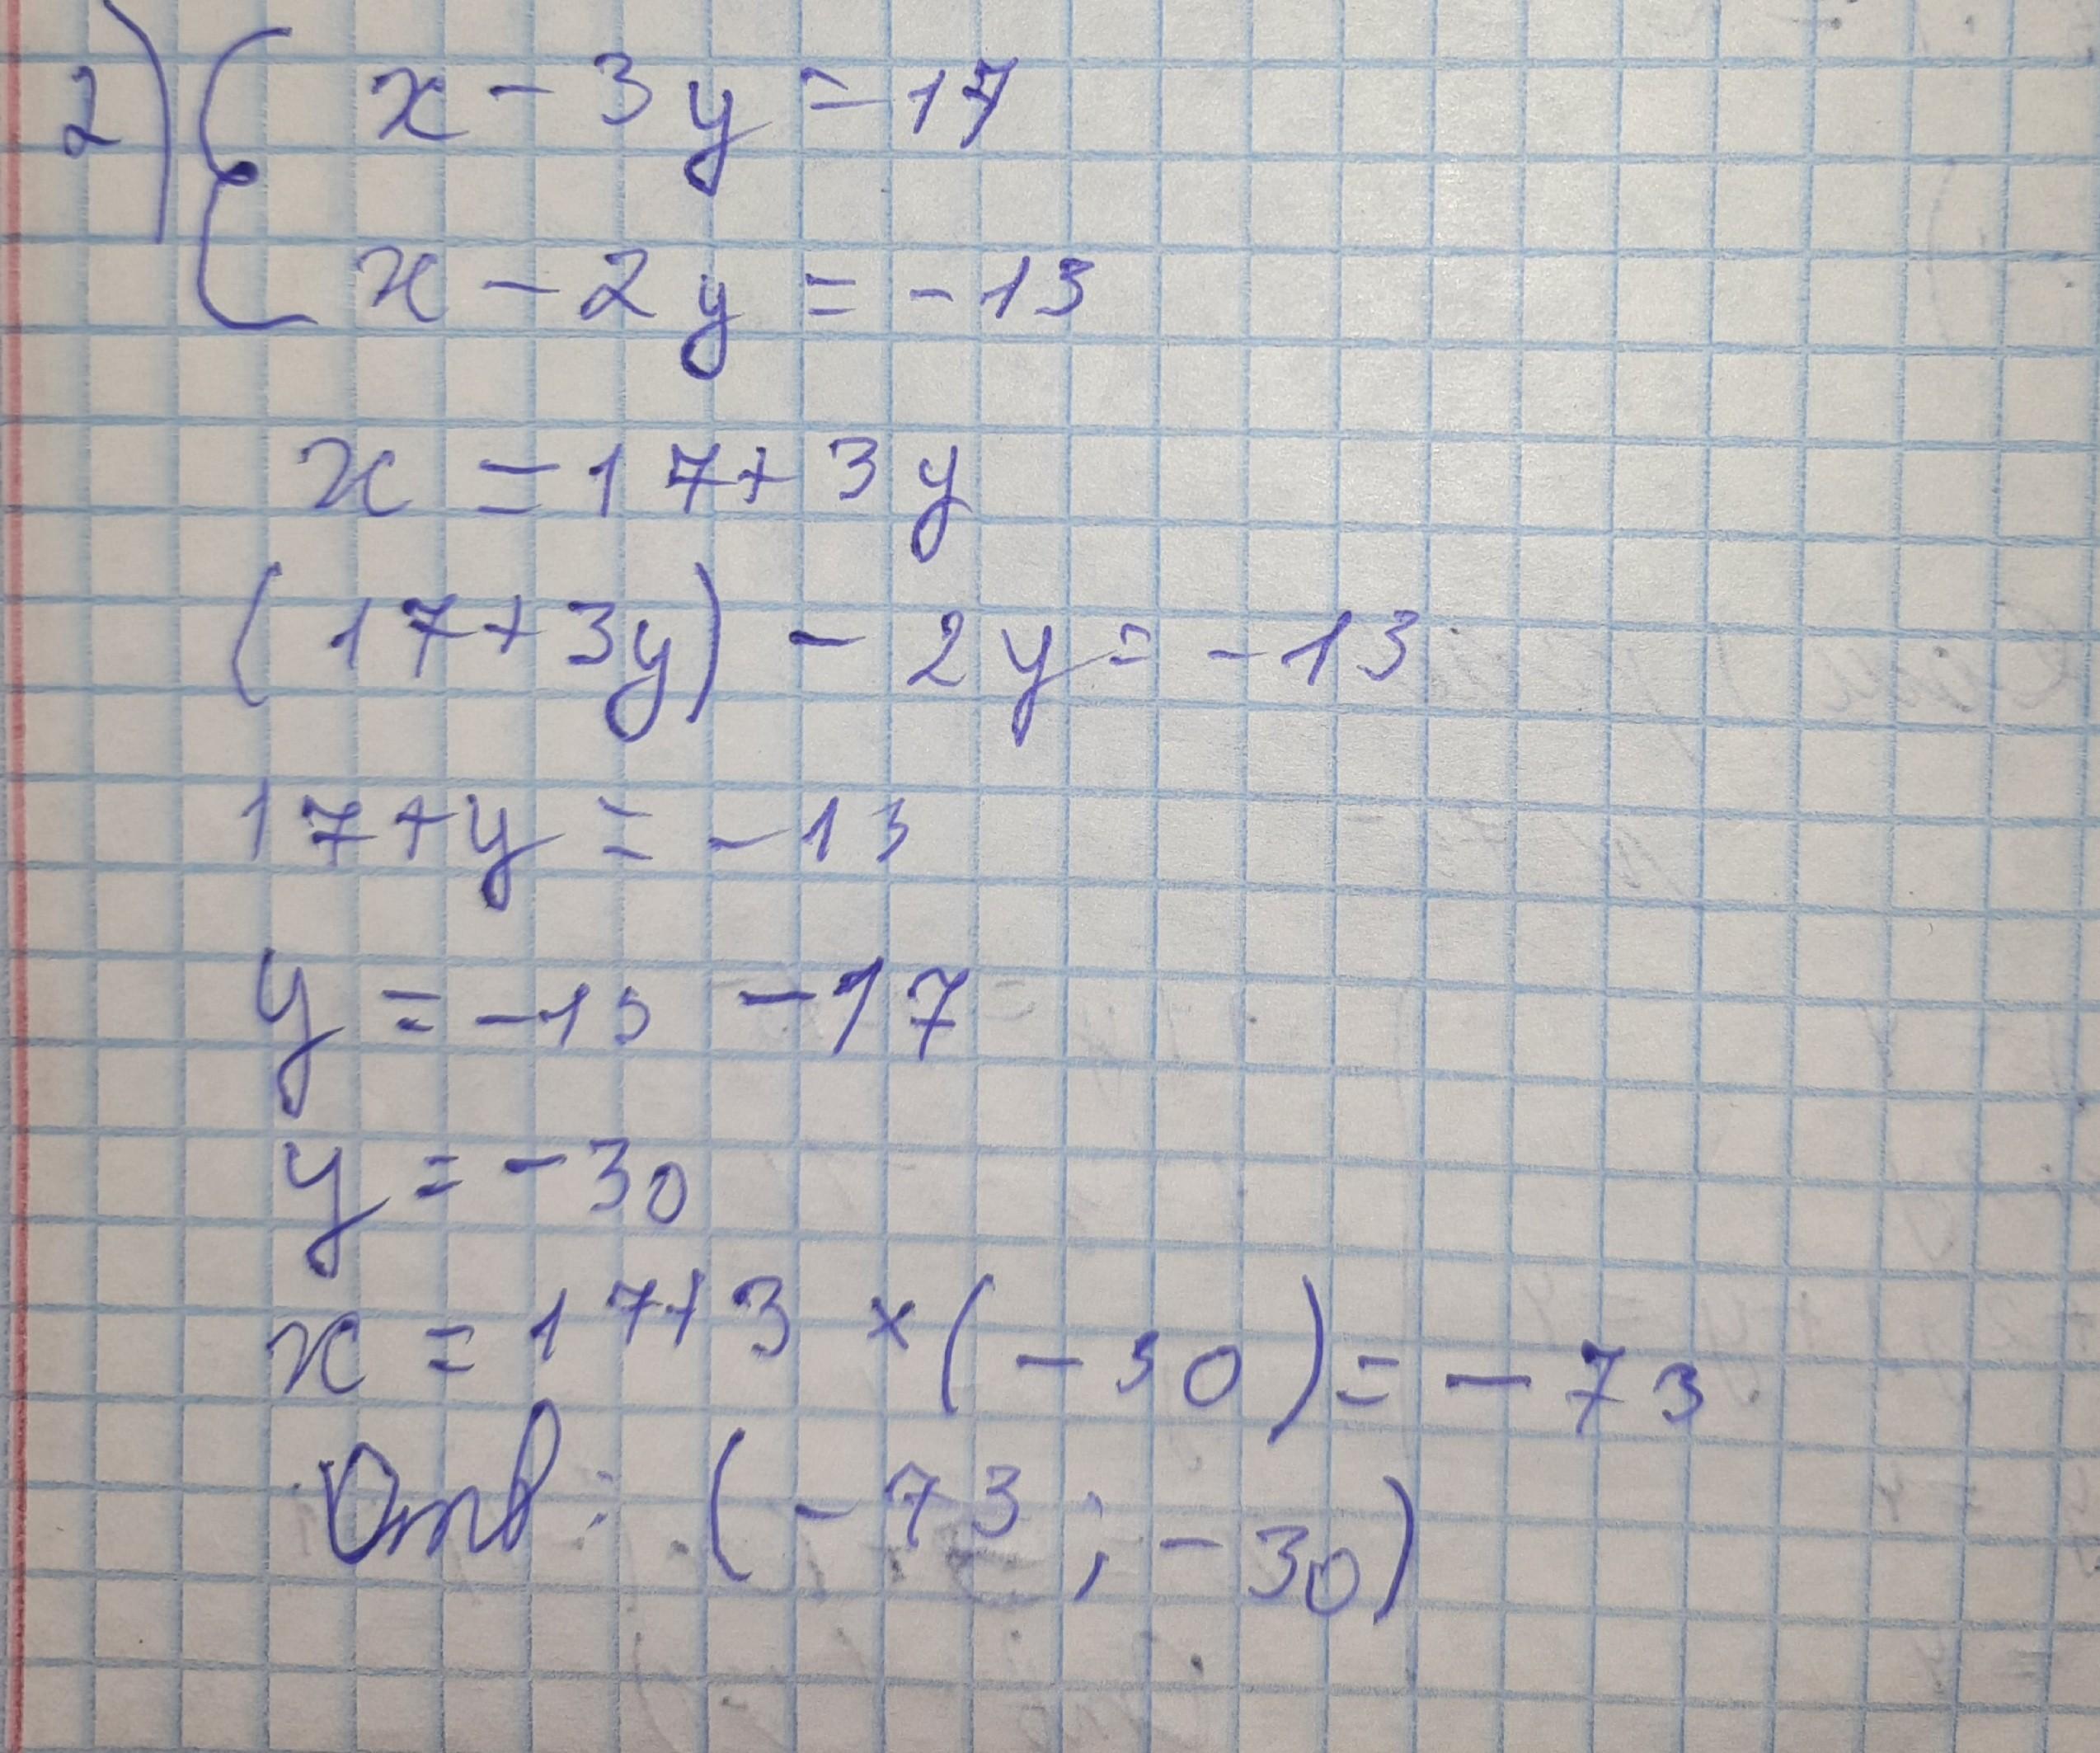 2) { x - 3y = 17
x - 2y = -13
x = 17 + 3y
(17 + 3y) - 2y = -13
17 + y = -13
y = -13 - 17
y = -30
x = 17 + 3 × (-30) = -73
Отв: (-73; -30)